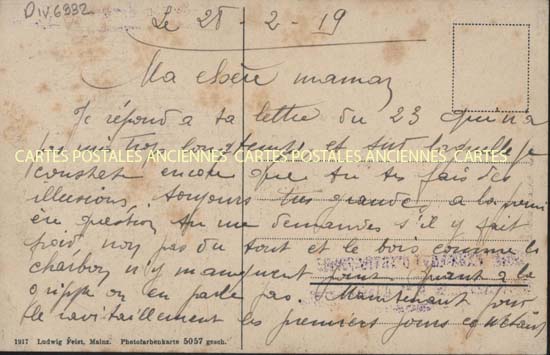 DIV.6932
Le 28 - 2 - 19
Ma chère maman
Je répond a ta lettre du 23 qui n'a
pas mis trop longtemps et sur laquelle je
CARTES POSTALES ANCIENNES CARTES POSTALES ANCIENNES CARTES POSTALES
constat encore que tu te fais des
illusions, toujours très grande, a la
en question tu me demandes s'il y fait
froid, non pas du tout et le bois comme le
charbon n'y manquent point Quant a la
grippe on en parle pas. Maintenant pour
le ravitaillement les premiers jours
1917 Ludwig Feist, Mainz. Photofarbenkarte 5057 gesch.